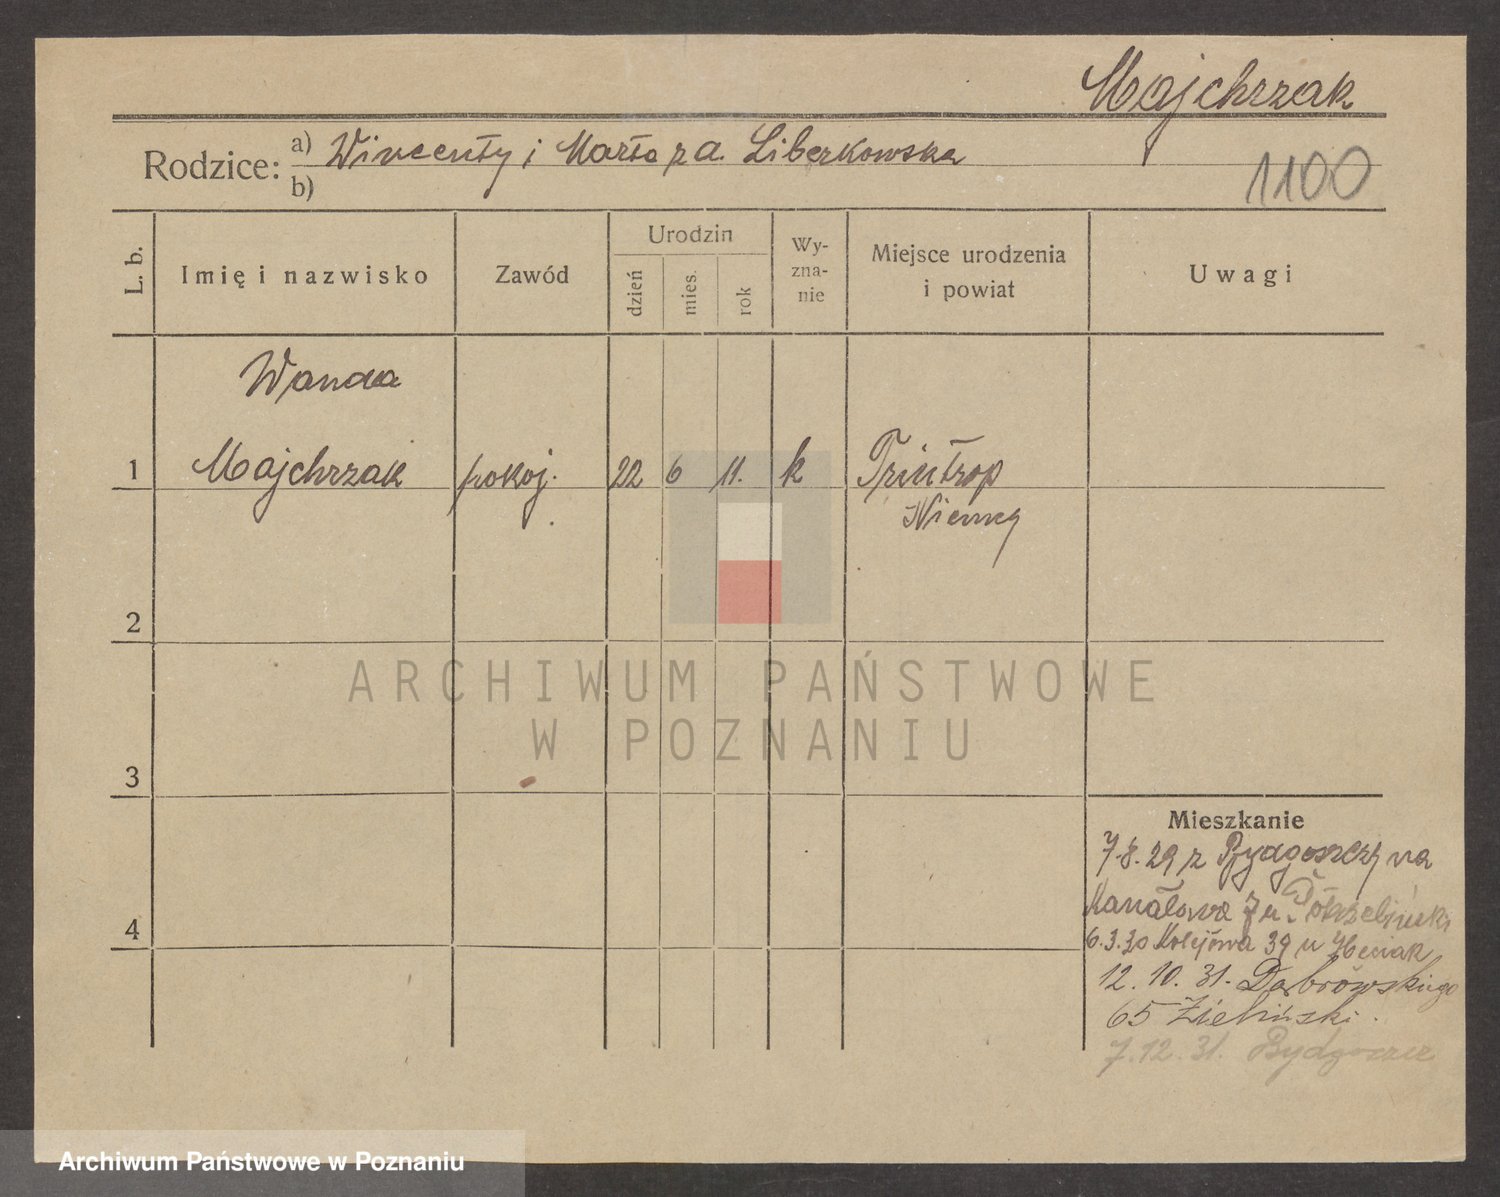 Majchrzak
Rodzice: a) Wincenty i Marta z d. Liberkowska
b)
1100
L. b.
Imię i nazwisko
Zawód
Urodzin
dzień
mies.
rok
Wy-
zna-
nie
Miejsce urodzenia
i powiat
Uwagi
Wanda
1 Majchrzak pokoj. 22 6 11. k Trintrop
Niemcy
2
ARCHIWUM PAŃSTWOWE
W POZNANIU
3
Mieszkanie
7.8.29 z Bydgoszczy na
Kanałowa 7 u.
4
6.3.30 Kolejowa 39 u
12.10.31. Dąbrowskiego
65 Zieliński.
7.12.31. Bydgoszcz
Archiwum Państwowe w Poznaniu